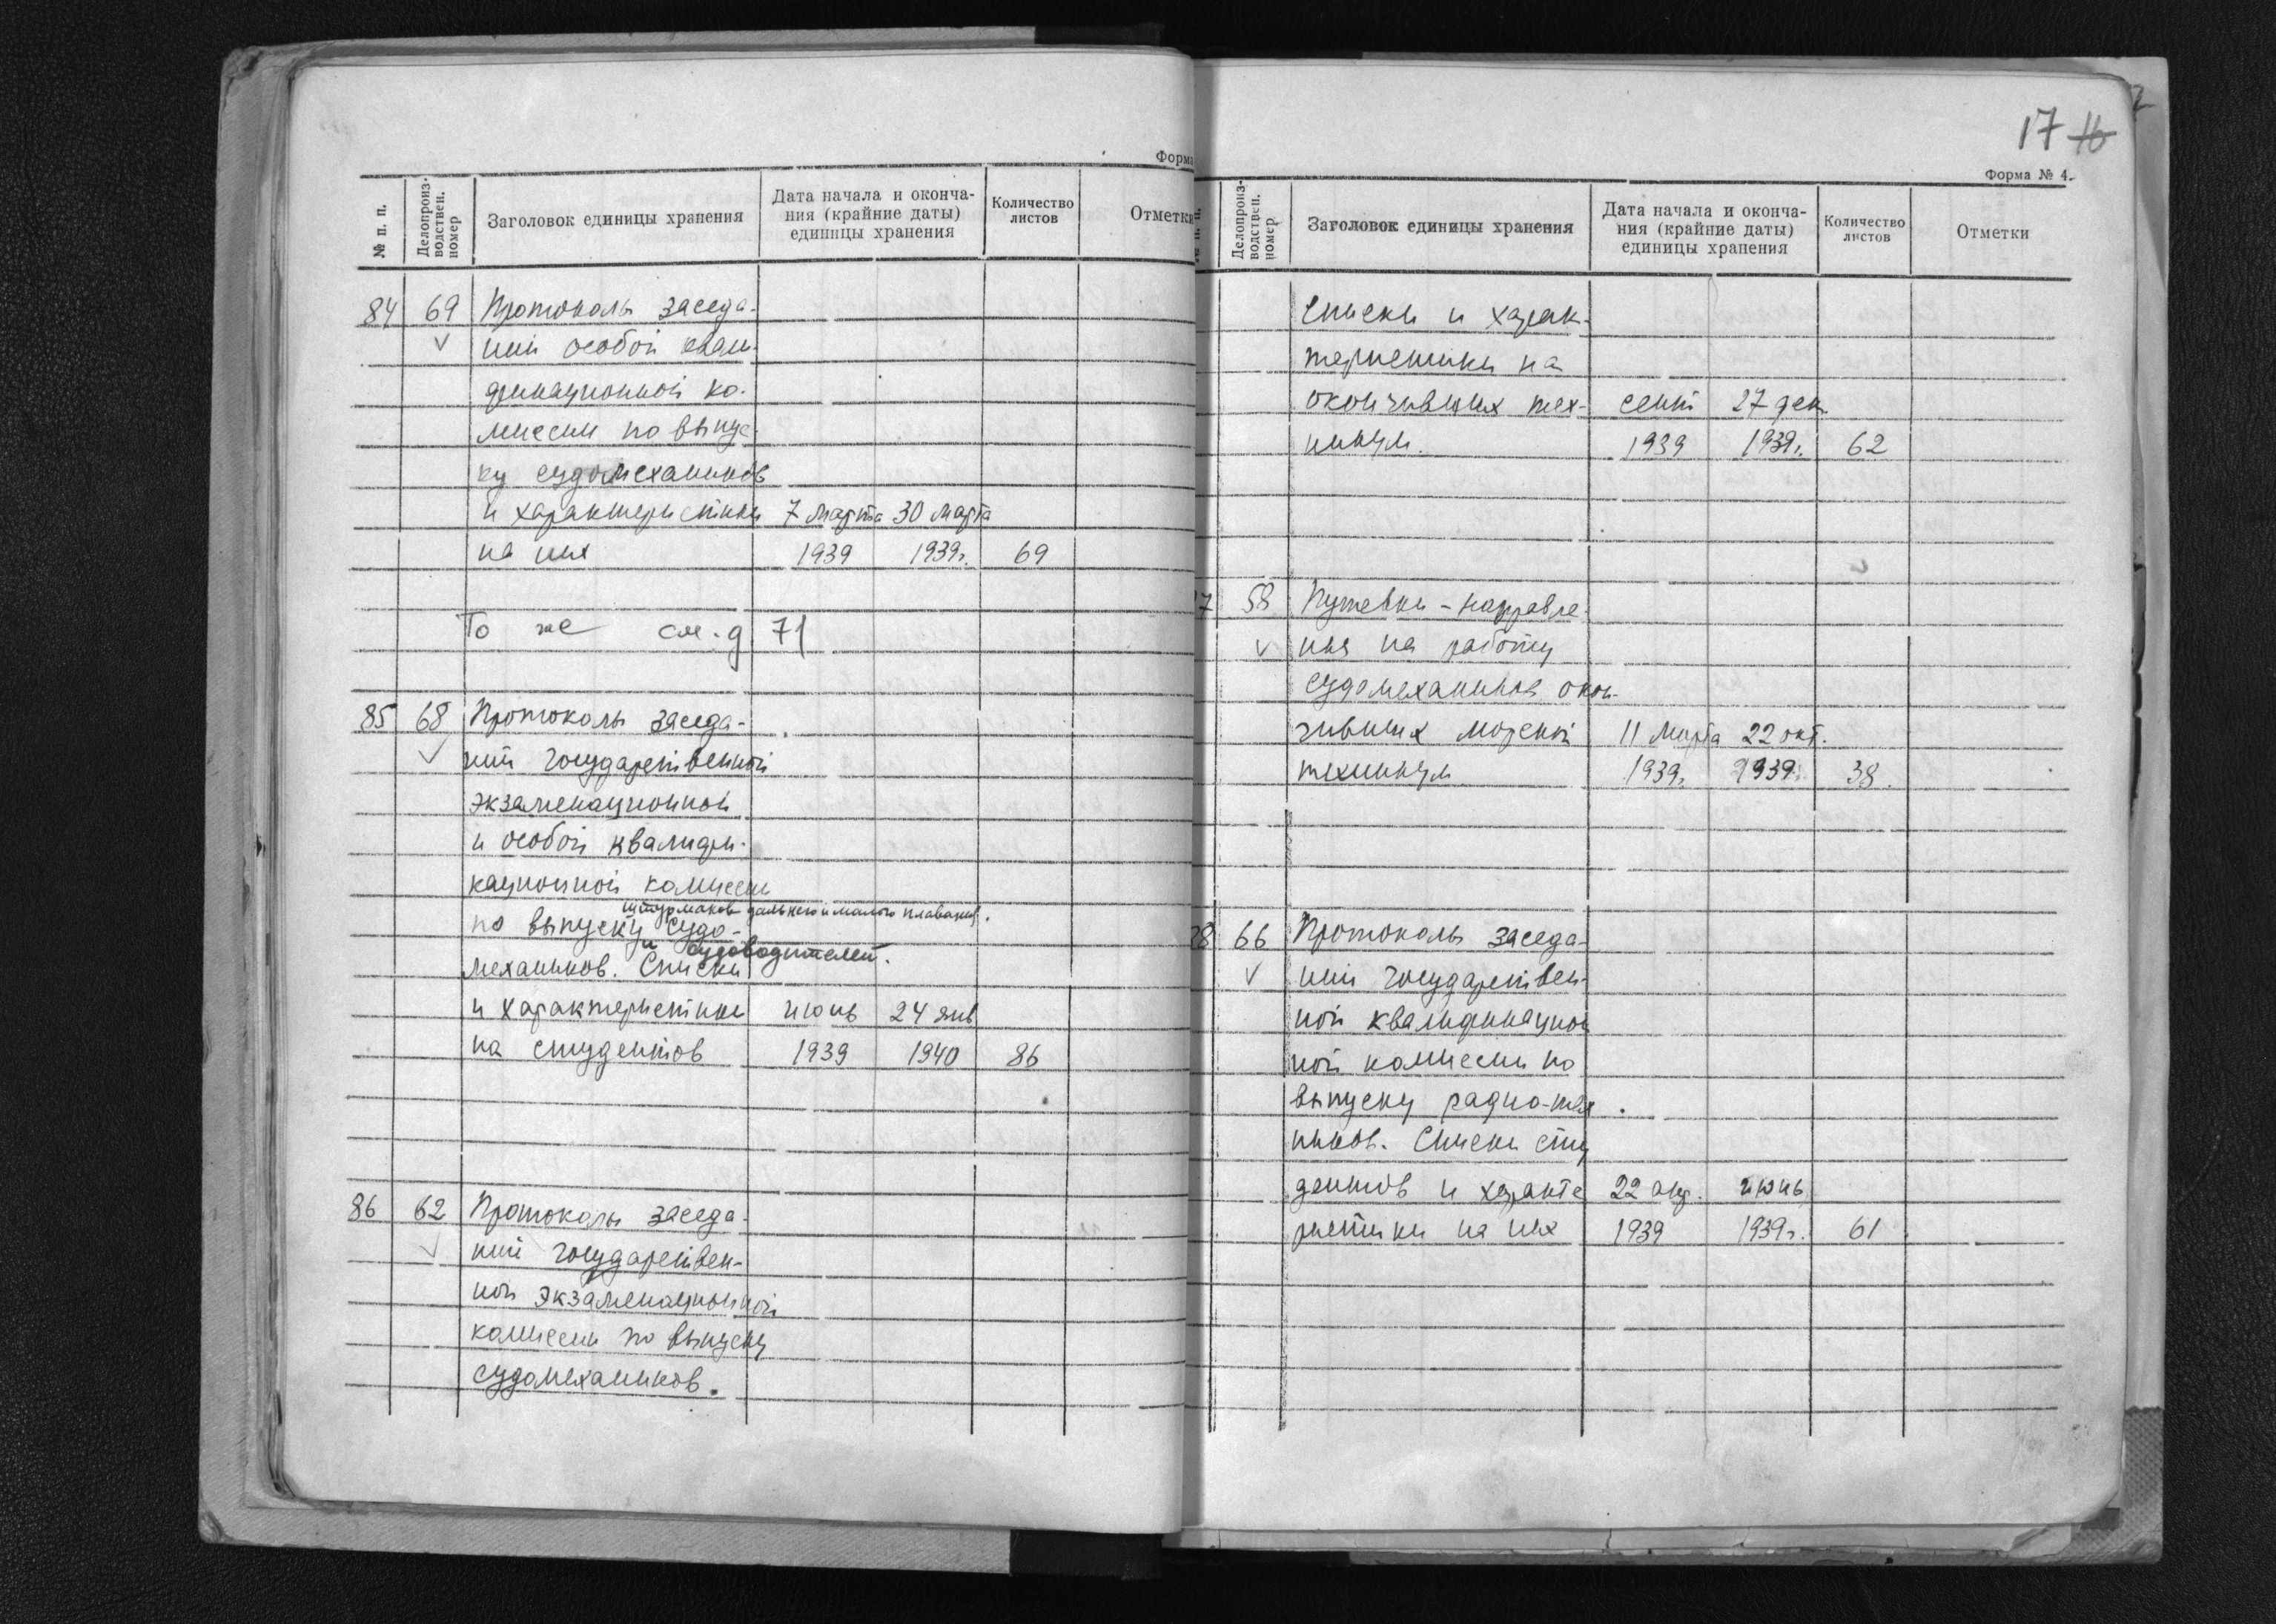 Форма
№ п. п.
Делопроиз-
водствен.
номер
Заголовок единицы хранения
Дата начала и оконча-
ния (крайние даты)
единицы хранения
Количество
листов
Отметки
84 69 Протоколы заседа-
ний особой квали-
фикационной ко-
миссии по выпус-
ку судомехаников
и характеристики 7 марта 30 марта
на них 1939 1939г. 69
То же см. д 71
85 68 Протоколы заседа-
ний государственной
экзаменационной
и особой квалифи-
кационной комиссии
штурманов дальнего и малого плавания.
по выпуску судо-
и судоводителей.
механиков. Списки
и характеристики июнь 24 янв
на студентов 1939 1940 86
86 62 Протоколы заседа-
ний государствен-
ной экзаменационной
комиссии по выпуску
судомехаников.
17 16
Форма № 4.
Делопроиз-
водствен.
номер
Заголовок единицы хранения
Дата начала и оконча-
ния (крайние даты)
единицы хранения
Количество
листов
Отметки
Списки и харак-
теристики на
окончивших тех- сент 27 дек.
никум. 1939 1939г. 62
7 58 Путевки - направле-
ния на работу
судомехаников окон-
чивших морской 11 марта 22 окт.
техникум 1939г. 1939г. 38
8 66 Протоколы заседа-
ний государствен-
ной квалификацион
ной комиссии по
выпуску радио-тех
ников. Списки сту
дентов и характе 22 апр. июнь
ристики на них 1939 1939г. 61